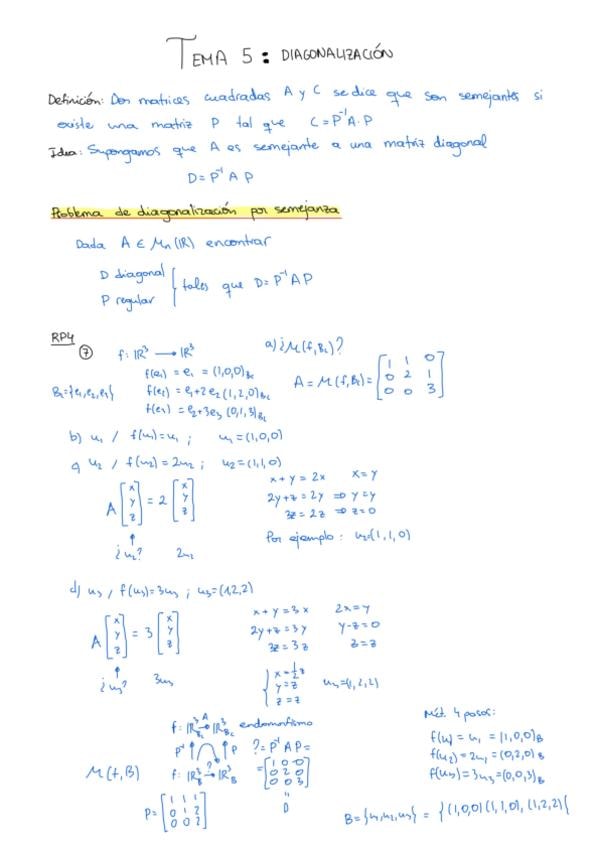 TEMA 5: DIAGONALIZACIÓN
Definición: Dos matrices cuadradas A y C se dice que son semejantes si
existe una matriz P tal que C=P⁻¹A·P
Idea: Supongamos que A es semejante a una matriz diagonal
D=P⁻¹AP
Problema de diagonalización por semejanza
Dada A ∈ Mn(IR) encontrar
D diagonal
P regular
tales que D=P⁻¹AP
RP4
⑦ f: IR³ → IR³
a) ¿M(f,Bc)?
Bc={e₁,e₂,e₃}
f(e₁) = e₁ = (1,0,0)Bc
f(e₂) = e₁+2e₂ (1,2,0)Bc
f(e₃) = e₂+3e₃ (0,1,3)Bc
A = M(f,Bc) = [1 1 0
0 2 1
0 0 3]
b) u₁ / f(u₁)=u₁ ; u₁=(1,0,0)
c) u₂ / f(u₂) = 2u₂ ; u₂=(1,1,0)
A [x y z] = 2 [x y z]
¿u₂? 2u₂
x+y = 2x x=y
2y+z = 2y ⇒ y=y
3z = 2z ⇒ z=0
Por ejemplo: u₂=(1,1,0)
d) u₃ / f(u₃)=3u₃ ; u₃=(1,2,2)
A [x y z] = 3 [x y z]
¿u₃? 3u₃
x+y=3x 2x=y
2y+z=3y y-z=0
3z=3z z=z
{ x=½z
y=z
z=z
u₃=(1,2,2)
f: IR³Bc A→ IR³Bc endomorfismo
P⁻¹ ↑ ↑ P ?=P⁻¹AP=
M(f,B) f: IR³B ?→ IR³B
=[1 0 0
0 2 0
0 0 3]
"
D
P=[1 1 1
0 1 2
0 0 2]
Mét. 4 pasos:
f(u₁) = u₁ = (1,0,0)B
f(u₂) = 2u₂ = (0,2,0)B
f(u₃) = 3u₃ = (0,0,3)B
B={u₁,u₂,u₃} = {(1,0,0)(1,1,0),(1,2,2)}